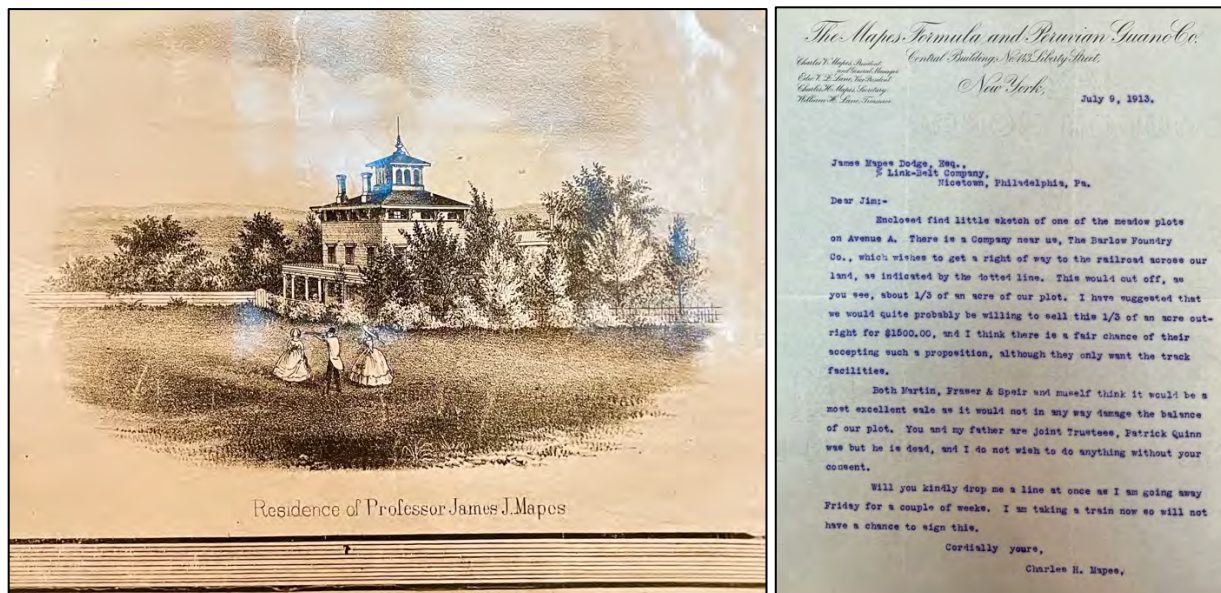 Residence of Professor James J. Mapes
The Mapes Formula and Peruvian Guano Co.
Central Building, No 143 Liberty Street,
Charles V. Mapes, President
and General Manager
Charles H. Mapes, Secretary
William H. Lane, Treasurer
New York,
July 9, 1913.
James Mapes Dodge, Esq.,
% Link-Belt Company,
Nicetown, Philadelphia, Pa.
Dear Jim:-
Enclosed find little sketch of one of the meadow plots
on Avenue A. There is a Company near us, The Barlow Foundry
Co., which wishes to get a right of way to the railroad across our
land, as indicated by the dotted line. This would cut off, as
you see, about 1/3 of an acre of our plot. I have suggested that
we would quite probably be willing to sell this 1/3 of an acre out-
right for $1500.00, and I think there is a fair chance of their
accepting such a proposition, although they only want the track
facilities.
Both Martin, Fraser & Speir and myself think it would be a
most excellent sale as it would not in any way damage the balance
of our plot. You and my father are joint Trustees, Patrick Quinn
was but he is dead, and I do not wish to do anything without your
consent.
Will you kindly drop me a line at once as I am going away
Friday for a couple of weeks. I am taking a train now so will not
have a chance to sign this.
Cordially yours,
Charles H. Mapes,